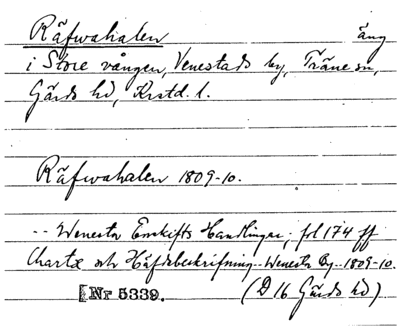 Räfwahalen äng
i Store vången, Venestads by, Träne sn,
Gärds hd, Krstd. l.
Räfwahalen 1809-10.
-- Wenesta Enskifts Handlingar, fol 174 ff
Charta och Häfdebeskrifning.. Wenesta By.. 1809-10.
Nr 5339. (D 16 Gärds hd)